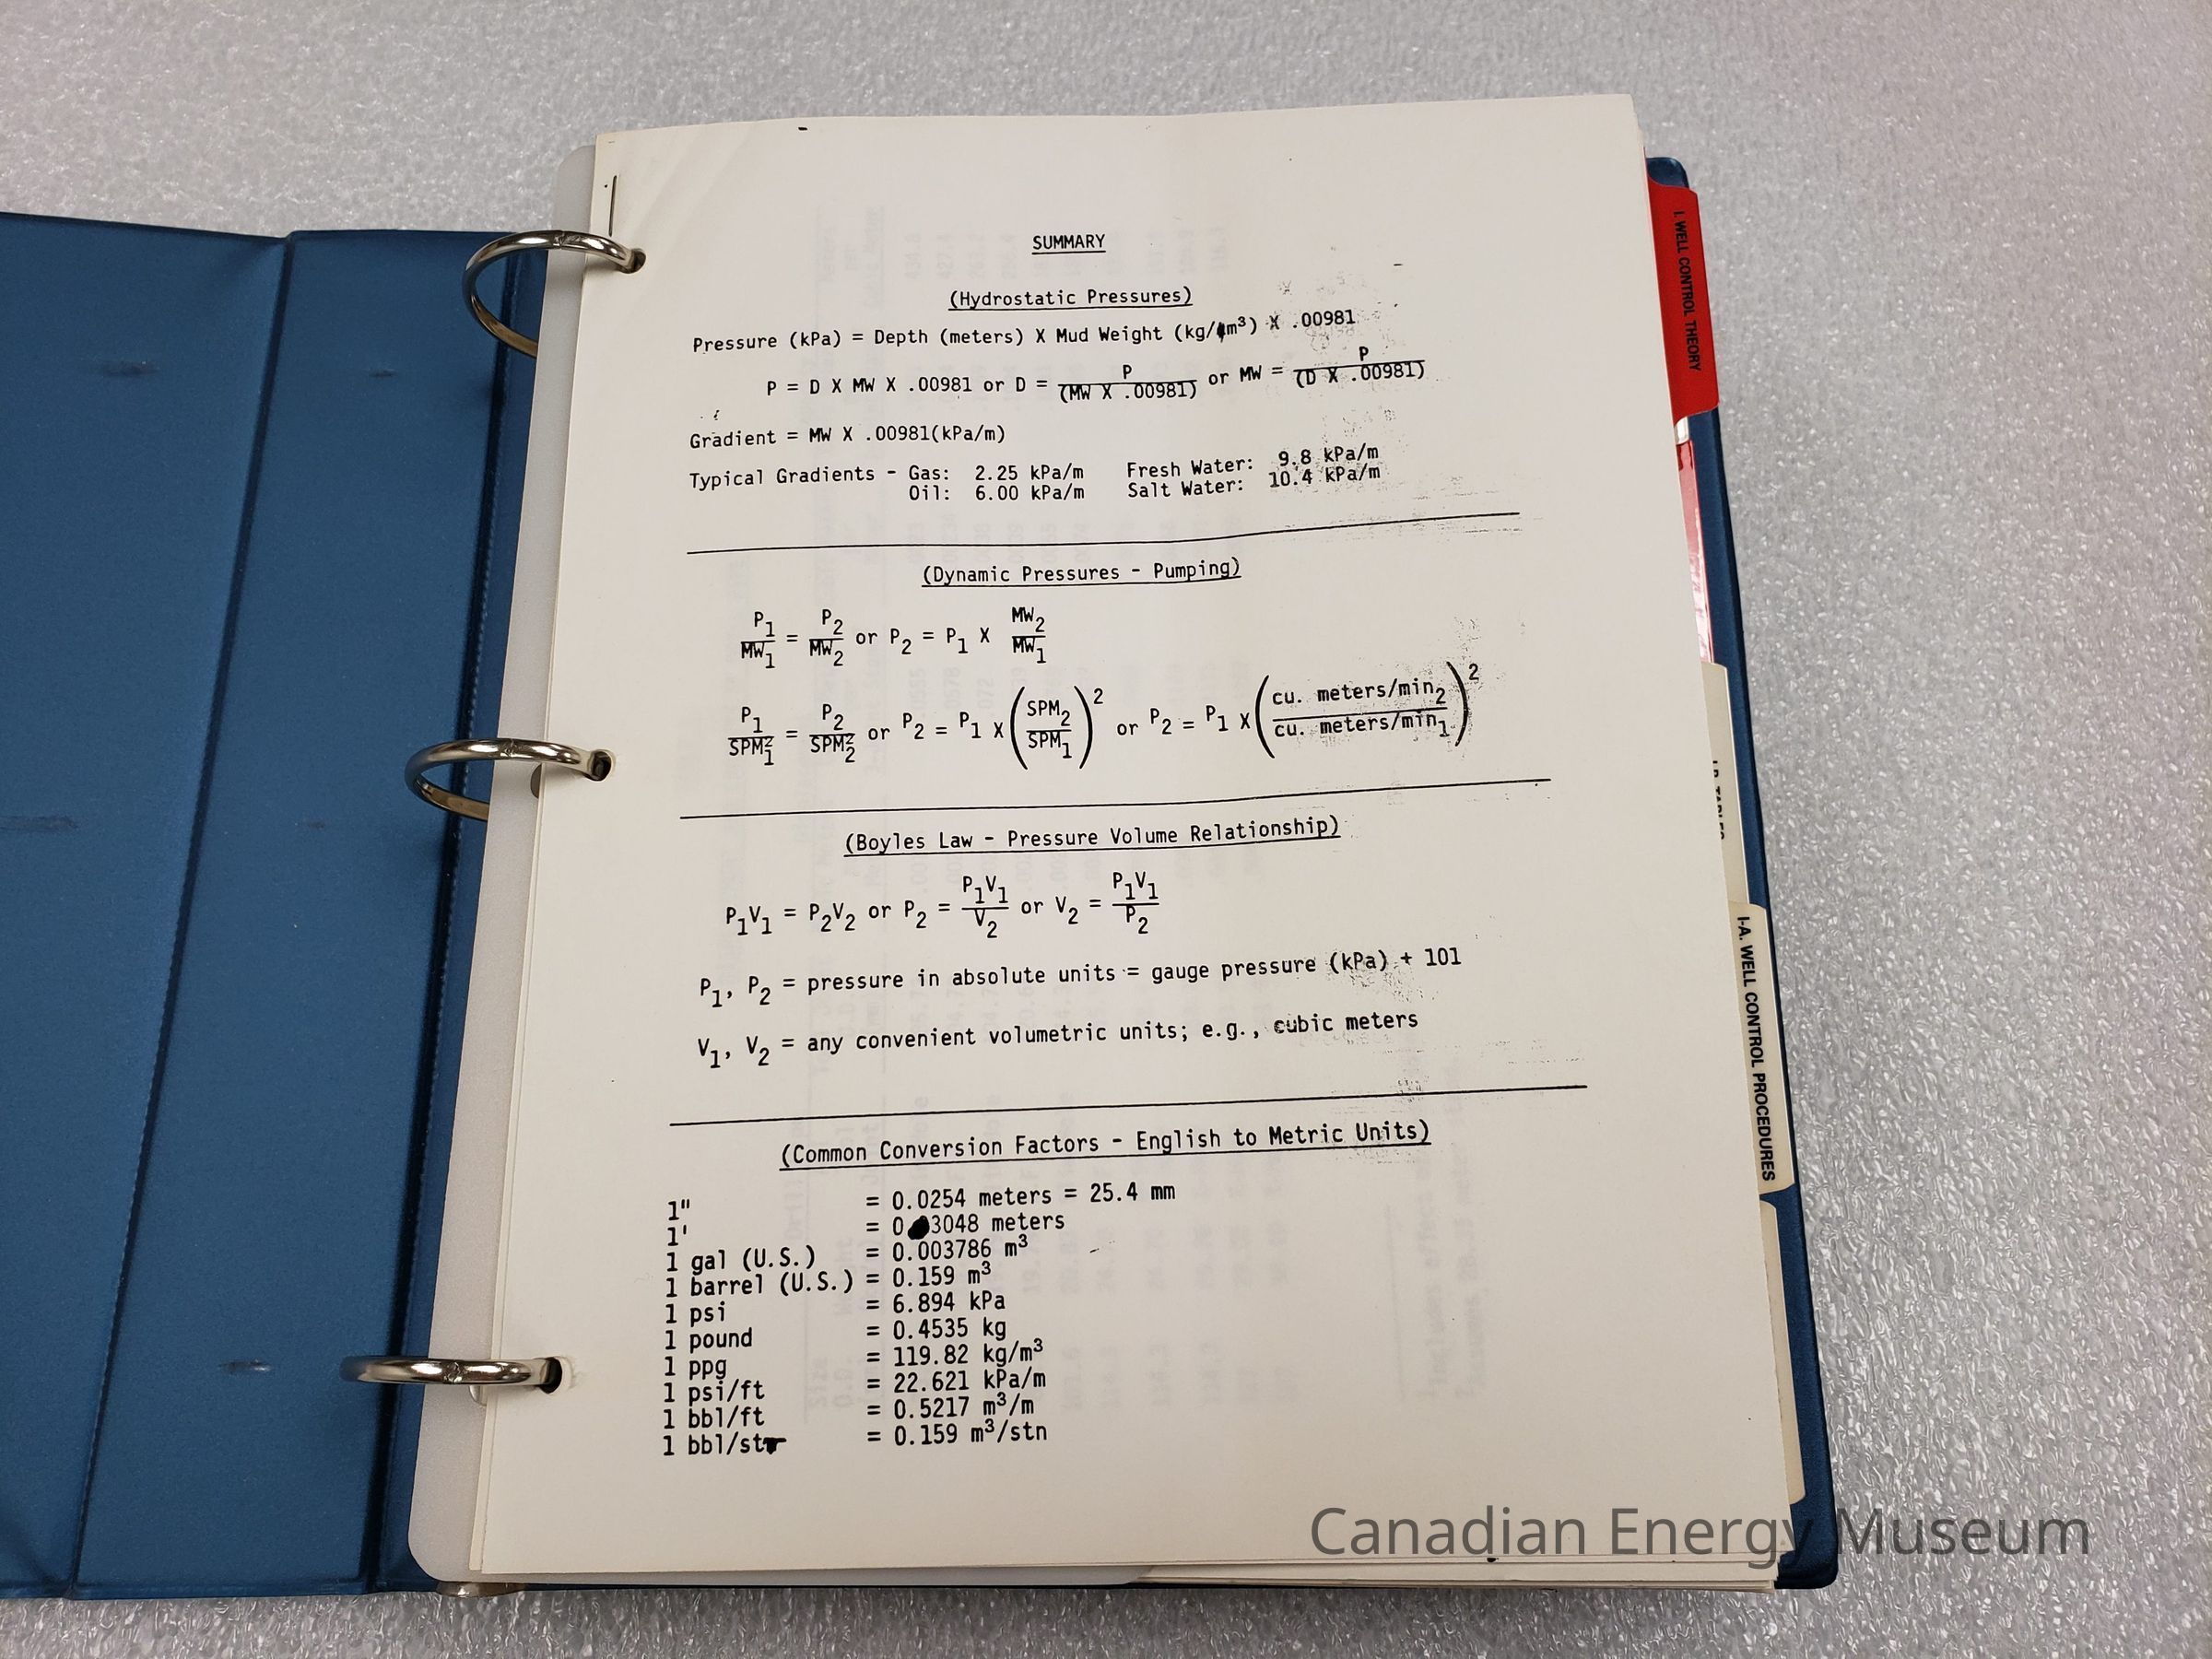 SUMMARY
(Hydrostatic Pressures)
Pressure (kPa) = Depth (meters) X Mud Weight (kg/m³) X .00981
P = D X MW X .00981 or D = P/(MW X .00981) or MW = P/(D X .00981)
Gradient = MW X .00981(kPa/m)
Typical Gradients - Gas: 2.25 kPa/m Fresh Water: 9.8 kPa/m
Oil: 6.00 kPa/m Salt Water: 10.4 kPa/m
(Dynamic Pressures - Pumping)
P₁/MW₁ = P₂/MW₂ or P₂ = P₁ X MW₂/MW₁
P₁/SPM₁² = P₂/SPM₂² or P₂ = P₁ X (SPM₂/SPM₁)² or P₂ = P₁ X (cu. meters/min₂/cu. meters/min₁)²
(Boyles Law - Pressure Volume Relationship)
P₁V₁ = P₂V₂ or P₂ = P₁V₁/V₂ or V₂ = P₁V₁/P₂
P₁, P₂ = pressure in absolute units = gauge pressure (kPa) + 101
V₁, V₂ = any convenient volumetric units; e.g., cubic meters
(Common Conversion Factors - English to Metric Units)
1" = 0.0254 meters = 25.4 mm
1' = 0.3048 meters
1 gal (U.S.) = 0.003786 m³
1 barrel (U.S.) = 0.159 m³
1 psi = 6.894 kPa
1 pound = 0.4535 kg
1 ppg = 119.82 kg/m³
1 psi/ft = 22.621 kPa/m
1 bbl/ft = 0.5217 m³/m
1 bbl/st = 0.159 m³/stn
I. WELL CONTROL THEORY
I-A. WELL CONTROL PROCEDURES
Canadian Energy Museum